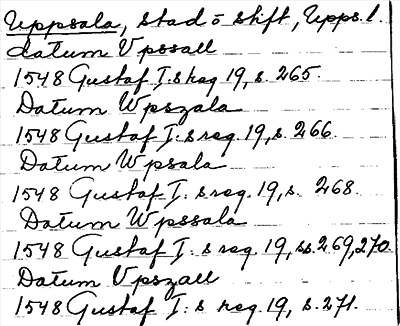 Uppsala, stad o stift, Upps. l.
datum Vpssall
1548 Gustaf I:s reg. 19, s. 265.
Datum Wpszala
1548 Gustaf I:s reg. 19, s. 266.
Datum Wpsala
1548 Gustaf I:s reg. 19, s. 268.
Datum Wpssala
1548 Gustaf I:s reg. 19, ss. 269, 270.
Datum Vpszall
1548 Gustaf I:s reg. 19, s. 271.